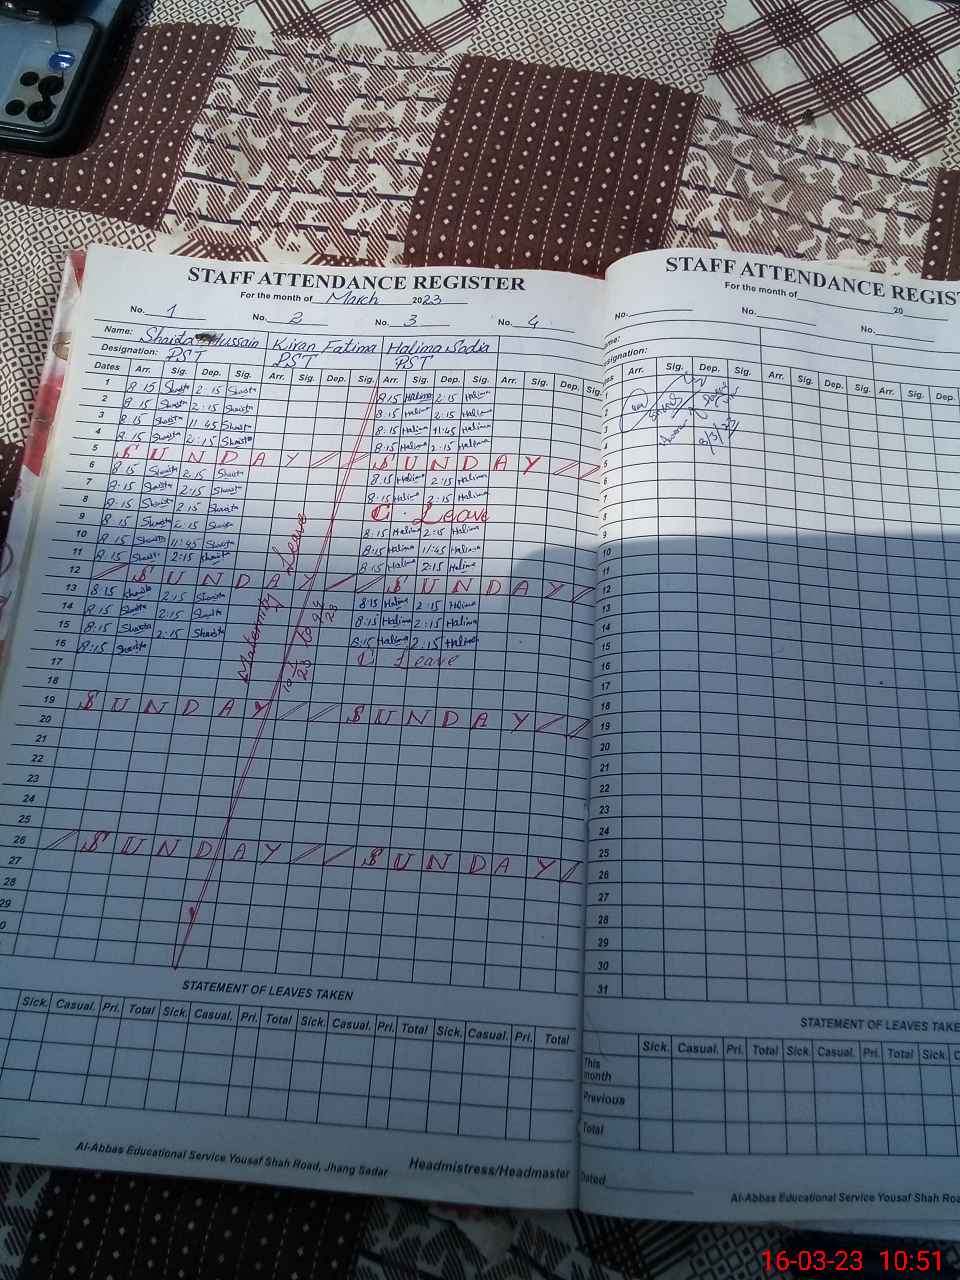 STAFF ATTENDANCE REGISTER
For the month of March 2023
No. 1 No. 2 No. 3 No. 4
Name: Hussain Kiran Fatima Halima Sadia
Designation: PST PST PST
Dates Arr. Sig. Dep. Sig. Arr. Sig. Dep. Sig. Arr. Sig. Dep. Sig. Arr. Sig. Dep. Sig.
1 8:15 Shaista 2:15 Shaista 8:15 Halima 2:15 Halima
2 8:15 Shaista 2:15 Shaista 8:15 Halima 2:15 Halima
3 8:15 Shaista 11:45 Shaista 8:15 Halima 11:45 Halima
4 8:15 Shaista 2:15 Shaista 8:15 Halima 2:15 Halima
5 SUNDAY SUNDAY
6 8:15 Shaista 2:15 Shaista 8:15 Halima 2:15 Halima
7 8:15 Shaista 2:15 Shaista 8:15 Halima 2:15 Halima
8 8:15 Shaista 2:15 Shaista C. Leave
9 8:15 Shaista 2:15 Shaista 8:15 Halima 2:15 Halima
10 8:15 Shaista 11:45 Shaista 8:15 Halima 11:45 Halima
11 8:15 Shaista 2:15 Shaista 8:15 Halima 2:15 Halima
12 SUNDAY SUNDAY
13 8:15 Shaista 2:15 Shaista 8:15 Halima 2:15 Halima
14 8:15 Shaista 2:15 Shaista 8:15 Halima 2:15 Halima
15 8:15 Shaista 2:15 Shaista 8:15 Halima 2:15 Halima
16 8:15 Shaista C Leave
17
18
19 SUNDAY SUNDAY
20
21
22
23
24
25
26 SUNDAY SUNDAY
27
28
29
Maternity Leave
STATEMENT OF LEAVES TAKEN
Sick. Casual. Pri. Total Sick. Casual. Pri. Total Sick. Casual. Pri. Total Sick. Casual. Pri. Total
Al-Abbas Educational Service Yousaf Shah Road, Jhang Sadar
Headmistress/Headmaster
STAFF ATTENDANCE
For the month of 20
No. No. No.
Arr. Sig. Dep. Sig. Arr. Sig. Dep. Sig. Arr. Sig. Dep.
2
3
4
5
6
7
8
9
10
11
12
13
14
15
16
17
18
19
20
21
22
23
24
25
26
27
28
29
30
31
STATEMENT OF LEAVES
Sick. Casual. Pri. Total Sick. Casual. Pri. Total Sick.
This month
Previous
Total
Dated
Al-Abbas Educational Service Yousaf Shah
16-03-23 10:51